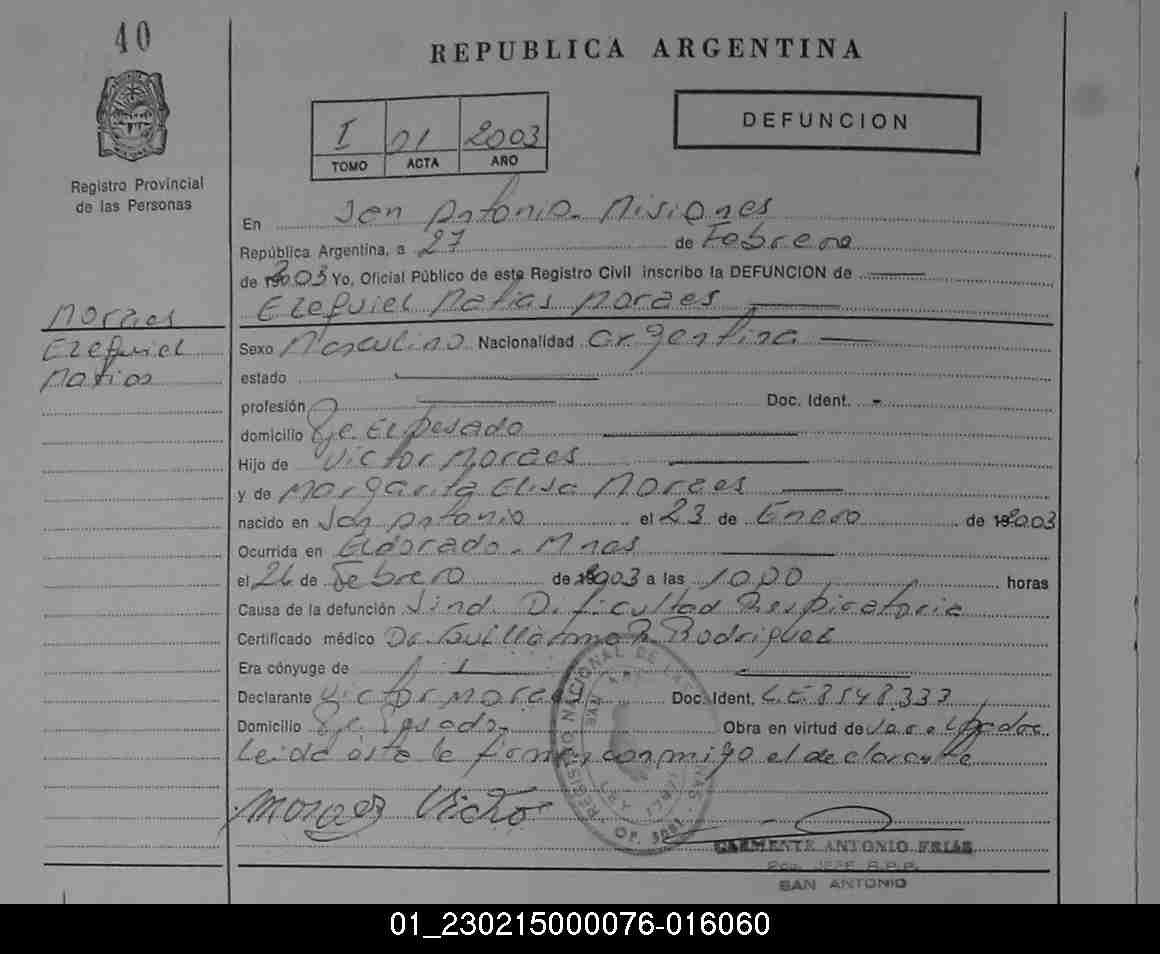 40
REPUBLICA ARGENTINA
I 01 2003
TOMO ACTA AÑO
DEFUNCION
Registro Provincial
de las Personas
En San Antonio. Misiones
República Argentina, a 27 de Febrero
de 2003 Yo, Oficial Público de este Registro Civil inscribo la DEFUNCION de
Ezequiel Matias Moraes
Moraes
Ezequiel
Matias
Sexo Masculino Nacionalidad argentina
estado
profesión Doc. Ident. -
domicilio Pje. El pesado
Hijo de Victor Moraes
y de Margarita Elisa Moraes
nacido en San Antonio el 23 de Enero de 2003
Ocurrida en Eldorado. Mnes
el 26 de Febrero de 2003 a las 10 00 horas
Causa de la defunción Sind. Dificultad Respiratoria
Certificado médico Dr. Guillermo Rodriguez
Era cónyuge de
Declarante Victor Moraes Doc. Ident. L.E 8548.333
Domicilio Pje. Pesado Obra en virtud de
Leida esta la firman conmigo el declarante
Moraes Victor
REGISTRO NACIONAL DE LAS
CLEMENTE ANTONIO FRIAS
JEFE R.P.P.
SAN ANTONIO
01_230215000076-016060